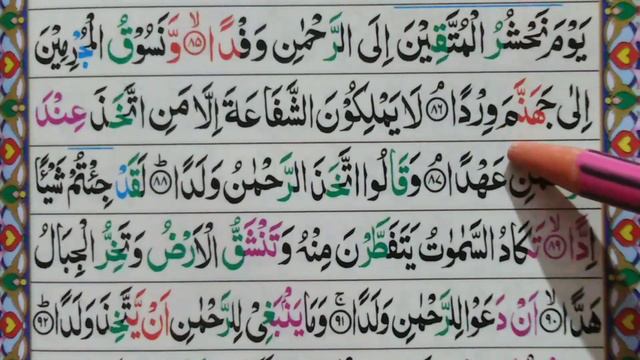 يَوْمَ نَحْشُرُ الْمُتَّقِيْنَ اِلَى الرَّحْمٰنِ وَفْدًا ۙ﴿۸۵﴾ وَّنَسُوْقُ الْمُجْرِمِيْنَ
اِلٰى جَهَنَّمَ وِرْدًا ۘ﴿۸۶﴾ لَا يَمْلِكُوْنَ الشَّفَاعَةَ اِلَّا مَنِ اتَّخَذَ عِنْدَ
عَهْدًا ۘ﴿۸۷﴾ وَقَالُوا اتَّخَذَ الرَّحْمٰنُ وَلَدًا ؕ﴿۸۸﴾ لَقَدْ جِئْتُمْ شَيْئًا
اِدًّا ۙ﴿۸۹﴾ تَكَادُ السَّمٰوٰتُ يَتَفَطَّرْنَ مِنْهُ وَتَنْشَقُّ الْاَرْضُ وَتَخِرُّ الْجِبَالُ
هَدًّا ۙ﴿۹۰﴾ اَنْ دَعَوْا لِلرَّحْمٰنِ وَلَدًا ۚ﴿۹۱﴾ وَمَا يَنْۢبَغِيْ لِلرَّحْمٰنِ اَنْ يَّتَّخِذَ وَلَدًا ؕ﴿۹۲﴾